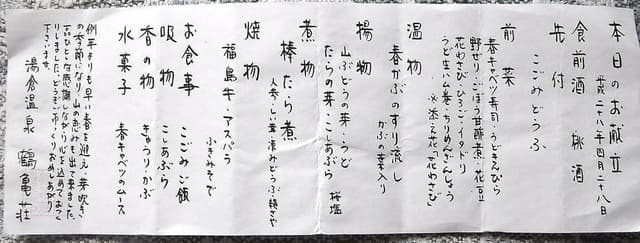 本日のお献立
平成二十八年四月二十八日
食前酒 桃酒
先付 こごみどうふ
前菜 春キャベツ寿司・うどきんぴら
野ぜり・ごぼう甘酢煮・花豆
花わさび・ひろこ・イタドリ
うど生ハム巻・ちりめんさんしょう
※添え花「花わさび」
温物 春かぶのすり流し
かぶの葉入り
揚物 山ぶどうの芽・うど
たらの芽・こしあぶら 桜塩
煮物 棒たら煮
人参・しいたけ・凍みどうふ・絹さや
焼物 福島牛・アスパラ
ふきみそで
お食事 こごみご飯
吸物 こしあぶら
香の物 きゅうり・かぶ
水菓子 春キャベツのムース
例年よりも早い春を迎え、芽吹き
の季節になり、山の恵みも出て来ました。
一品ひとしな感謝しながら心を込めておつく
りしました。どうぞごゆっくりお召しあがり
下さいませ。
湯倉温泉 鶴亀荘